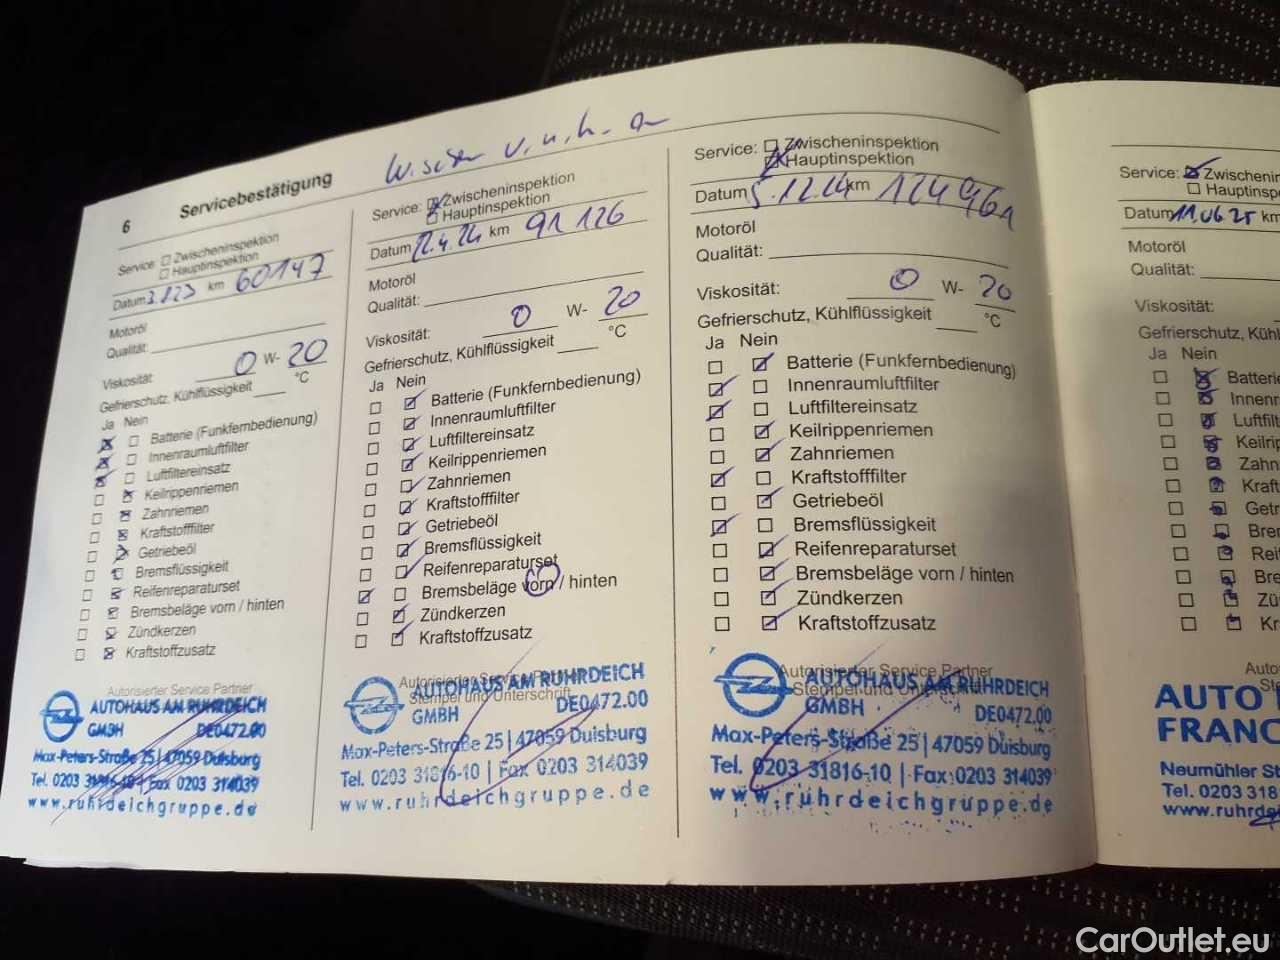 6 Servicebestätigung
Wischer v.u.h.
Service: Zwischeninspektion
Hauptinspektion
Datum km 60147
Motoröl
Qualität:
Viskosität: 0 W- 20
Gefrierschutz, Kühlflüssigkeit °C
Ja Nein
Batterie (Funkfernbedienung)
Innenraumluftfilter
Luftfiltereinsatz
Keilrippenriemen
Zahnriemen
Kraftstofffilter
Getriebeöl
Bremsflüssigkeit
Reifenreparaturset
Bremsbeläge vorn / hinten
Zündkerzen
Kraftstoffzusatz
Autorisierter Service Partner
AUTOHAUS AM RUHRDEICH
GMBH DE0472.00
Max-Peters-Straße 25 | 47059 Duisburg
Tel. 0203 31816-10 | Fax 0203 314039
www.ruhrdeichgruppe.de
Service: Zwischeninspektion
Hauptinspektion
Datum km 91 126
Motoröl
Qualität:
Viskosität: 0 W- 20
Gefrierschutz, Kühlflüssigkeit °C
Ja Nein
Batterie (Funkfernbedienung)
Innenraumluftfilter
Luftfiltereinsatz
Keilrippenriemen
Zahnriemen
Kraftstofffilter
Getriebeöl
Bremsflüssigkeit
Reifenreparaturset
Bremsbeläge vorn / hinten
Zündkerzen
Kraftstoffzusatz
Autorisierter Service Partner
Stempel und Unterschrift
AUTOHAUS AM RUHRDEICH
GMBH DE0472.00
Max-Peters-Straße 25 | 47059 Duisburg
Tel. 0203 31816-10 | Fax 0203 314039
www.ruhrdeichgruppe.de
Service: Zwischeninspektion
Hauptinspektion
Datum 5.12.24 km 124961
Motoröl
Qualität:
Viskosität: 0 W- 20
Gefrierschutz, Kühlflüssigkeit °C
Ja Nein
Batterie (Funkfernbedienung)
Innenraumluftfilter
Luftfiltereinsatz
Keilrippenriemen
Zahnriemen
Kraftstofffilter
Getriebeöl
Bremsflüssigkeit
Reifenreparaturset
Bremsbeläge vorn / hinten
Zündkerzen
Kraftstoffzusatz
Autorisierter Service Partner
Stempel und Unterschrift
AUTOHAUS AM RUHRDEICH
GMBH DE0472.00
Max-Peters-Straße 25 | 47059 Duisburg
Tel. 0203 31816-10 | Fax 0203 314039
www.ruhrdeichgruppe.de
Service: Zwischeninspektion
Hauptinspektion
Datum 11.06.25 km
Motoröl
Qualität:
Viskosität:
Gefrierschutz, Kühl
Ja Nein
Batterie
Innenr
Luftfilt
Keilrip
Zahn
Kraft
Getr
Bre
Rei
Bre
Zü
Kr
Auto
AUTO
FRANC
Neumühler St
Tel. 0203 318
www.ruhrde
CarOutlet.eu